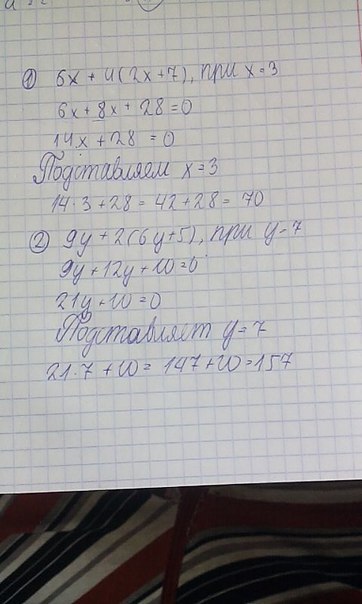 ① 6x + 4(2x+7), при x=3
6x + 8x + 28 = 0
14x + 28 = 0
Подставляем x=3
14·3+28 = 42+28 = 70
② 9y + 2(6y+5), при y=7
9y + 12y + 10 = 0
21y + 10 = 0
Подставляет y=7
21·7 + 10 = 147+10 = 157